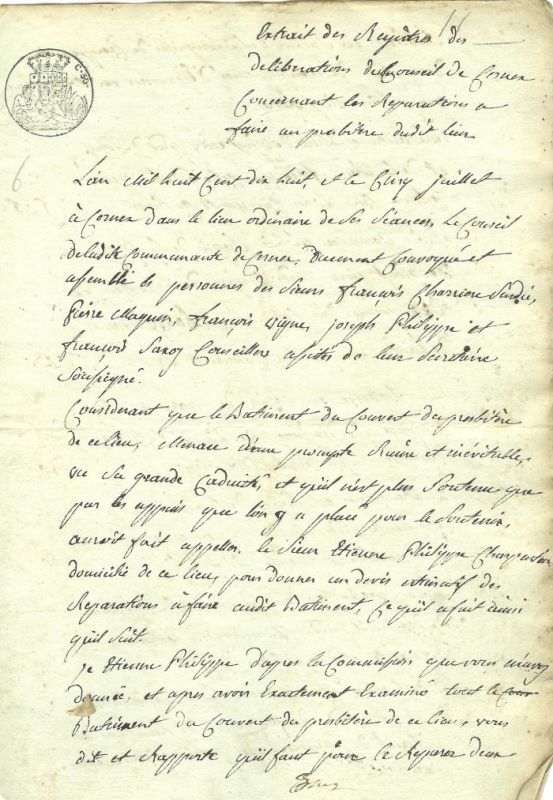 Extrait des Registres des
deliberations du Conseil de Cornex
Concernant les Reparations a
faire au presbitère dudit lieu
C. 30
6
L'an Mil huit Cent dix huit, et le Cinq juillet
à Cornex dans le lieu ordinaire de Ses Séances, Le Conseil
de ladite Communauté de Cornex, Duement Convoqué et
assemblé és personnes des Sieurs françois Charriere Sindic,
Pierre Maquin, françois vigne, joseph Philippe et
françois Saxoz Conseillers assistés de leur Secretaire
Soussigné.
Considerant que le Batiment du Couvert du presbitère
de ce lieu, Menace d'une prompte Ruine et inévitable,
vu Sa grande Caducité, et qu'il n'est plus Soutenu que
par les appuis que l'on y a placé pour le Soutenir,
auroit fait appeller le Sieur Etienne Philippe Charpentier
domicilié de ce lieu, pour donner un devis estimatif des
Reparations à faire audit Batiment, Ce qu'il a fait ainsi
qu'il Suit.
Je Etienne Philippe d'apres la Commission que vous m'avez
donnée, et apres avoir Exactement Examiné tout le
Batiment du Couvert du presbitère de ce lieu, vous
dit et Rapporte qu'il faut pour le Reparer deux